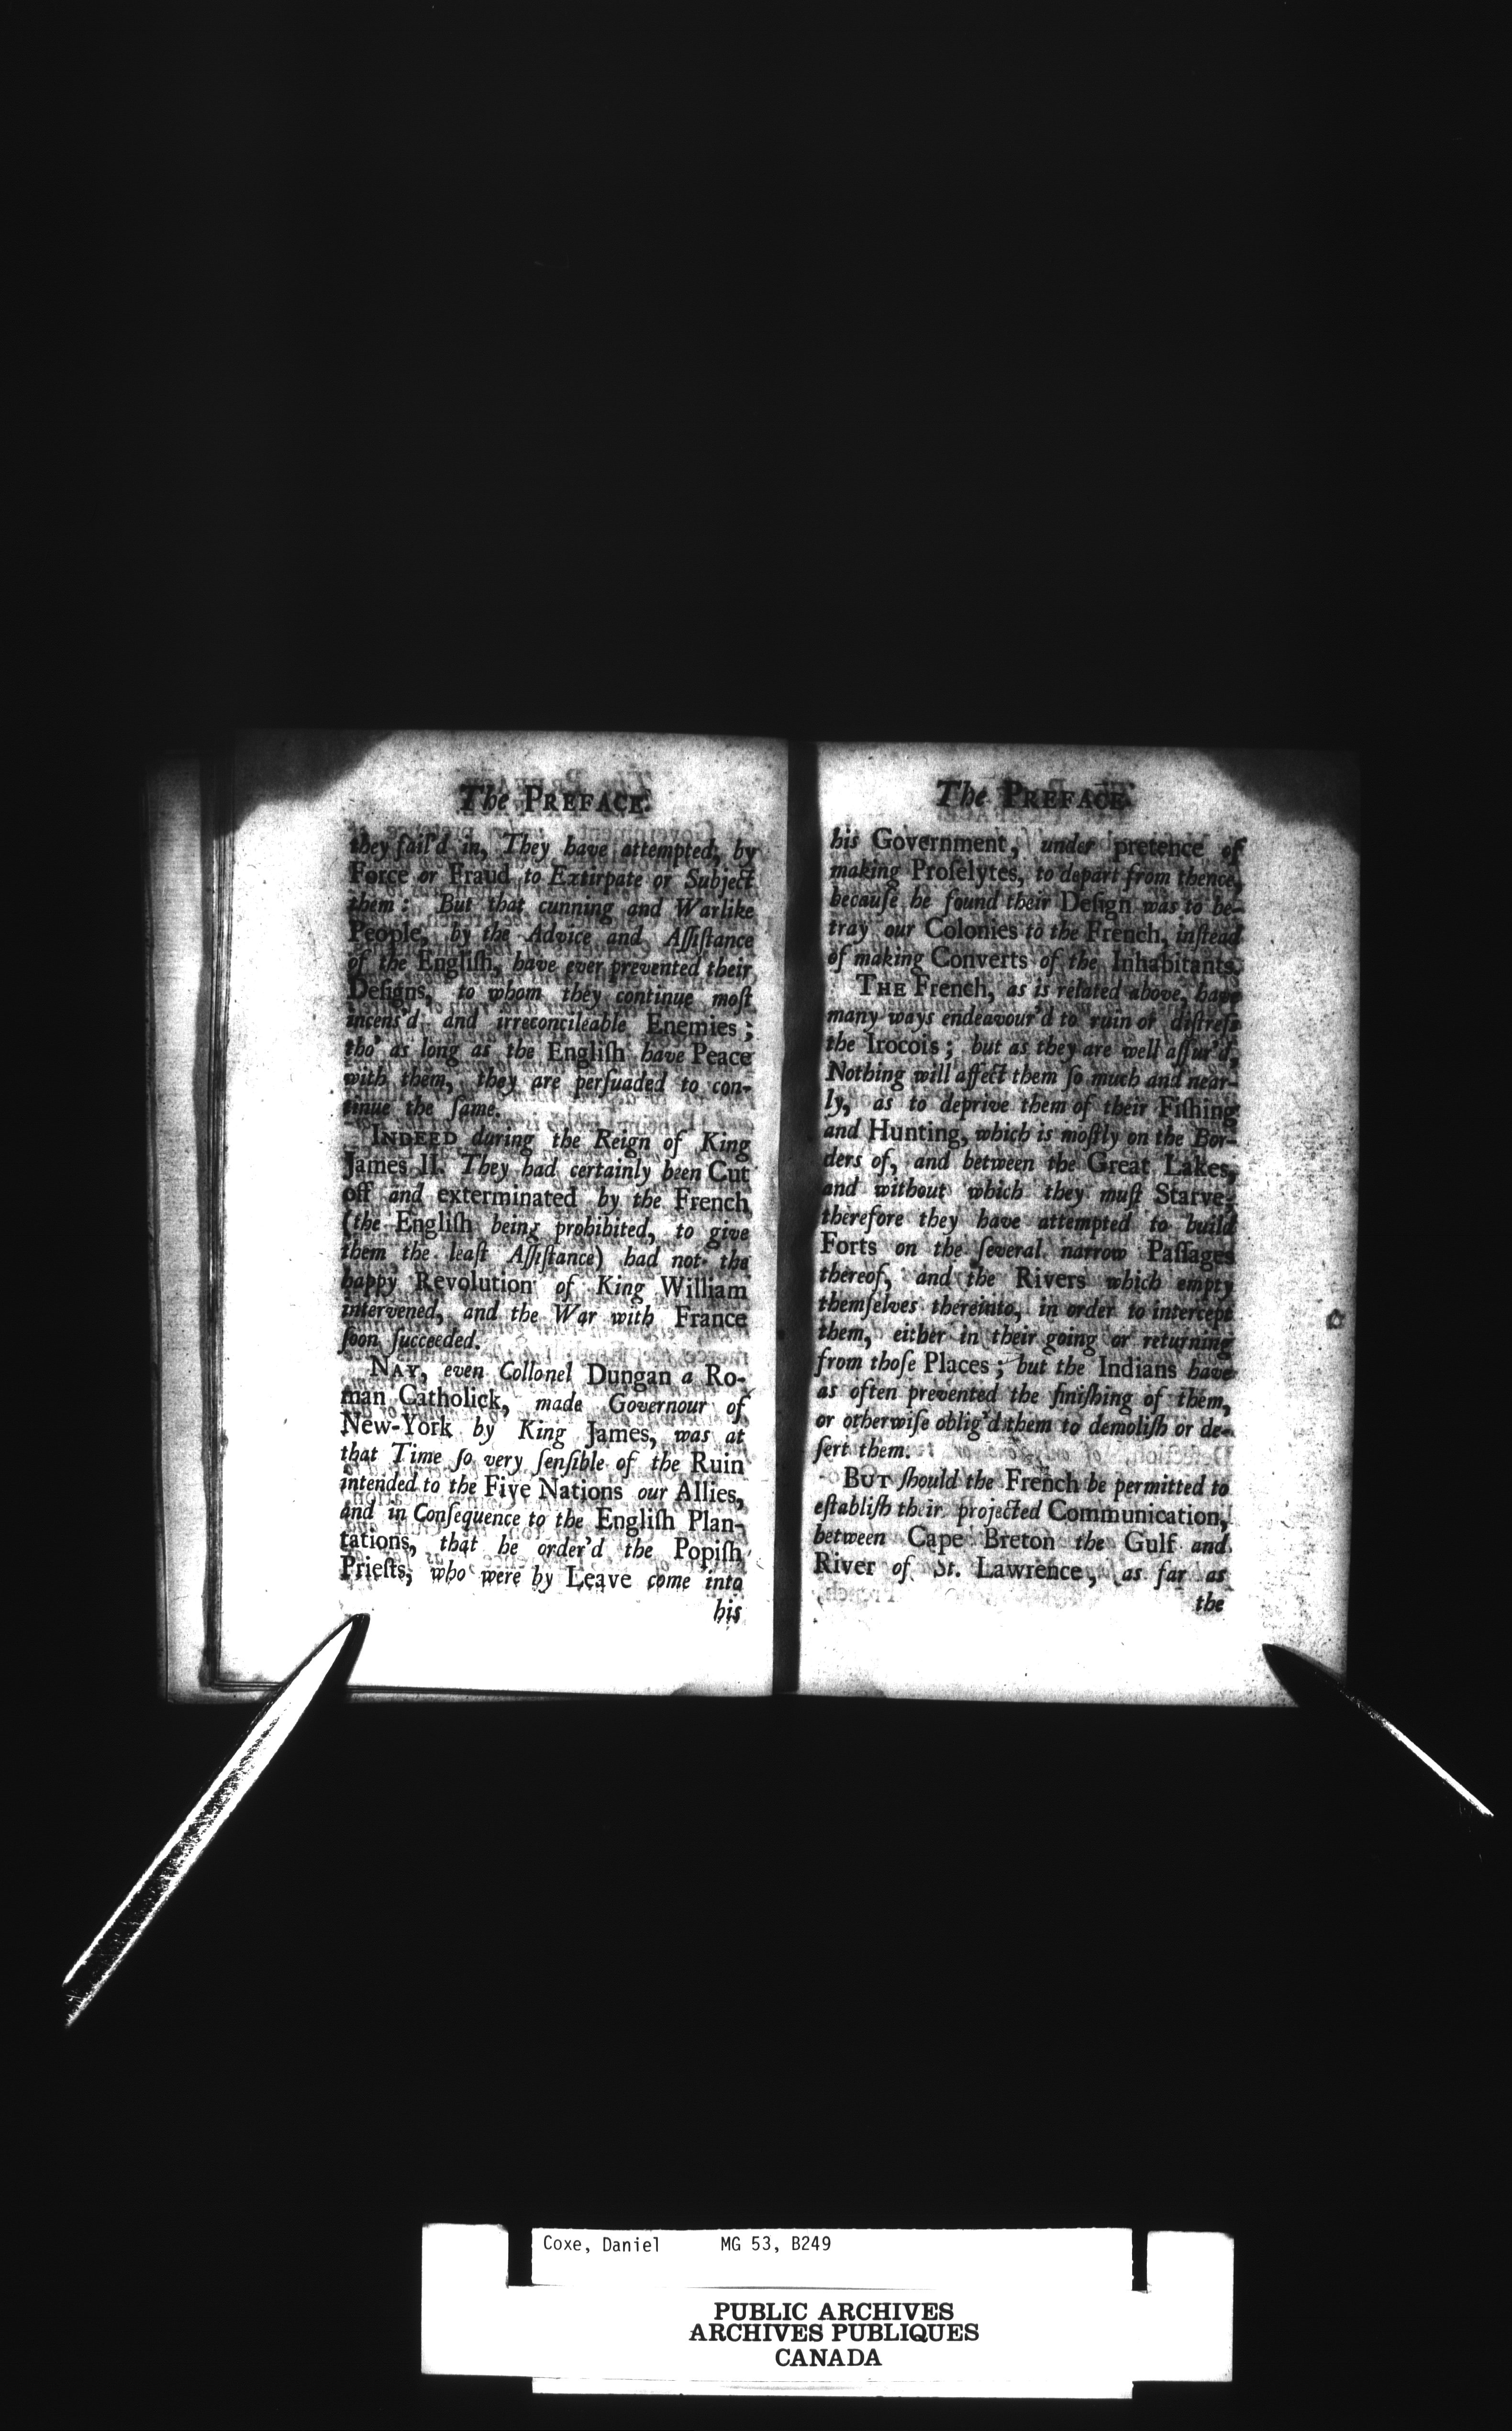 The PREFACE.
they fail'd in, They have attempted, by
Force or Fraud to Extirpate or Subject
them: But that cunning and Warlike
People, by the Advice and Aſſiſtance
of the Engliſh, have ever prevented their
Deſigns, to whom they continue moſt
incens'd and irreconcileable Enemies;
tho' as long as the Engliſh have Peace
with them, they are perſuaded to con-
tinue the ſame.
INDEED during the Reign of King
James II. They had certainly been Cut
off and exterminated by the French
(the Engliſh being prohibited, to give
them the leaſt Aſſiſtance) had not the
happy Revolution of King William
intervened, and the War with France
ſoon ſucceeded.
NAY, even Collonel Dungan a Ro-
man Catholick, made Governour of
New-York by King James, was at
that Time ſo very ſenſible of the Ruin
intended to the Five Nations our Allies,
and in Conſequence to the Engliſh Plan-
tations, that he order'd the Popiſh
Prieſts, who were by Leave come into
his
The PREFACE.
his Government, under pretence of
making Proſelytes, to depart from thence,
becauſe he found their Deſign was to be-
tray our Colonies to the French, inſtead
of making Converts of the Inhabitants.
THE French, as is related above, have
many ways endeavour'd to ruin or diſtreſs
the Irocois; but as they are well aſſur'd,
Nothing will affect them ſo much and near-
ly, as to deprive them of their Fiſhing
and Hunting, which is moſtly on the Bor-
ders of, and between the Great Lakes,
and without which they muſt Starve;
therefore they have attempted to build
Forts on the ſeveral narrow Paſſages
thereof, and the Rivers which empty
themſelves thereinto, in order to intercept
them, either in their going or returning
from thoſe Places; but the Indians have
as often prevented the finiſhing of them,
or otherwiſe oblig'd them to demoliſh or de-
ſert them.
BUT ſhould the French be permitted to
eſtabliſh their projected Communication,
between Cape Breton the Gulf and
River of St. Lawrence, as far as
the
Coxe, Daniel MG 53, B249
PUBLIC ARCHIVES
ARCHIVES PUBLIQUES
CANADA